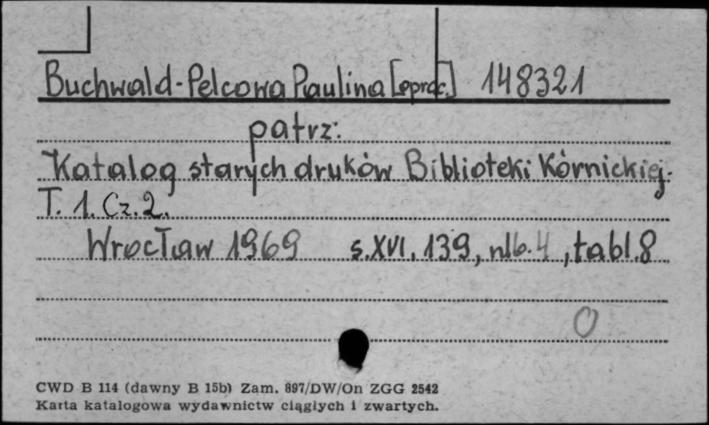 Buchwald-Pelcowa Paulina [oprac.] 148321
patrz:
Katalog starych druków Biblioteki Kórnickiej.
T. 1. Cz. 2.
Wrocław 1969 s. XVI, 139, nlb. 4, tabl. 8
0
CWD B 114 (dawny B 15b) Zam. 897/DW/On ZGG 2542
Karta katalogowa wydawnictw ciągłych i zwartych.